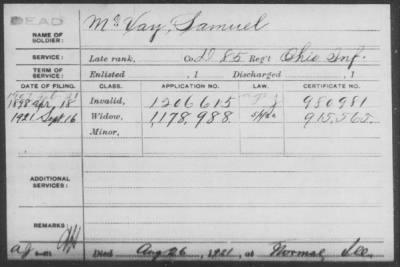 DEAD
NAME OF SOLDIER: McVay, Samuel
SERVICE: Late rank, Co. D. 85 Reg't Ohio Inf.
TERM OF SERVICE: Enlisted , 1 Discharged , 1
DATE OF FILING. CLASS. APPLICATION NO. LAW. CERTIFICATE NO.
1898 Apr. 18 Invalid, 1206615 980981
1921 Sept 16 Widow, 1,178,988 915,565.
Minor,
ADDITIONAL SERVICES:
REMARKS:
Died Aug 26, 1921, at Normal, Ill.